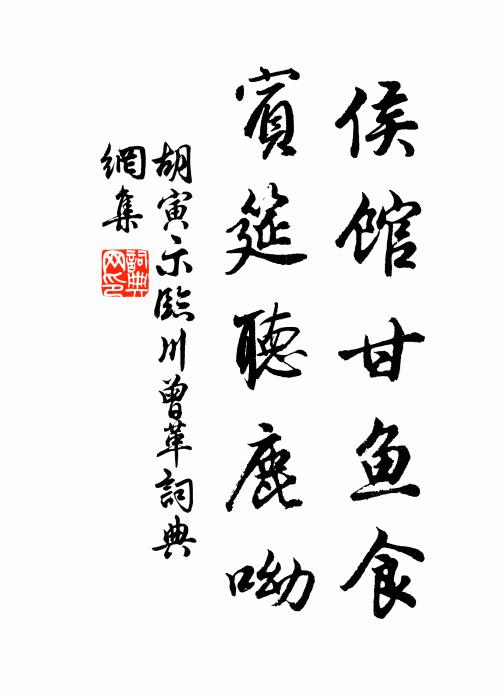 侯館甘魚食
賓筵聽鹿呦
胡寅示臨川曾革詞典
網集
詞典
网印